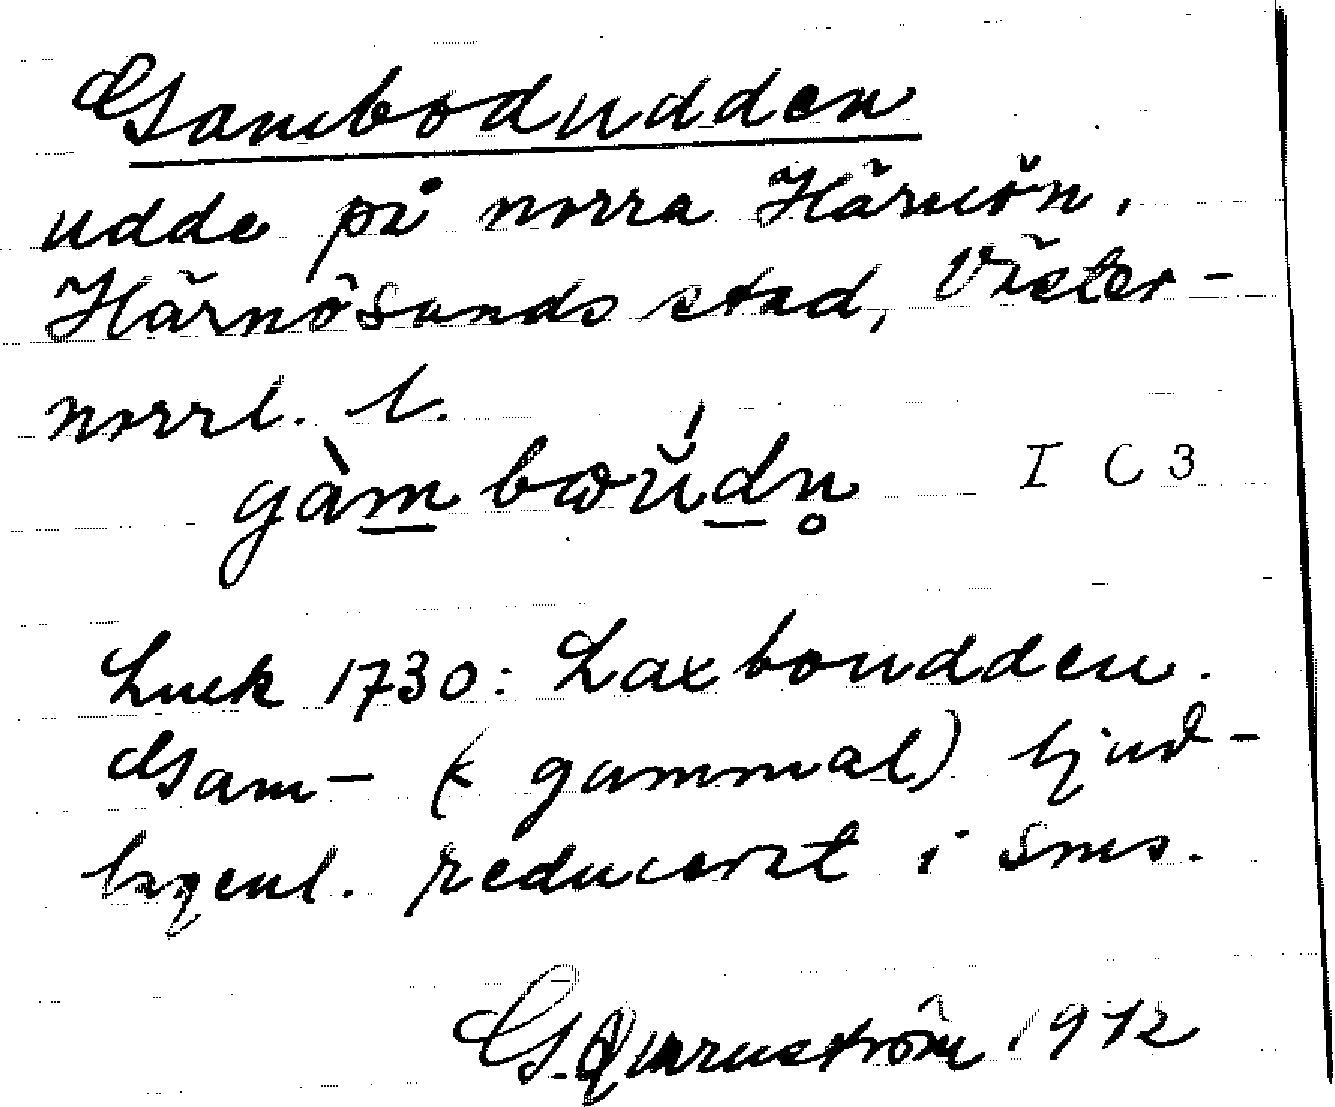 Gambodudden
udde på norra Härnön,
Härnösands stad, Väster-
norrl. l.
gàm bωŭdn̥ I C 3
Luck 1730: Laxboudden.
Gam- (< gammal) ljud-
lagenl. reducerat i sms.
G. Qvarnström 1972